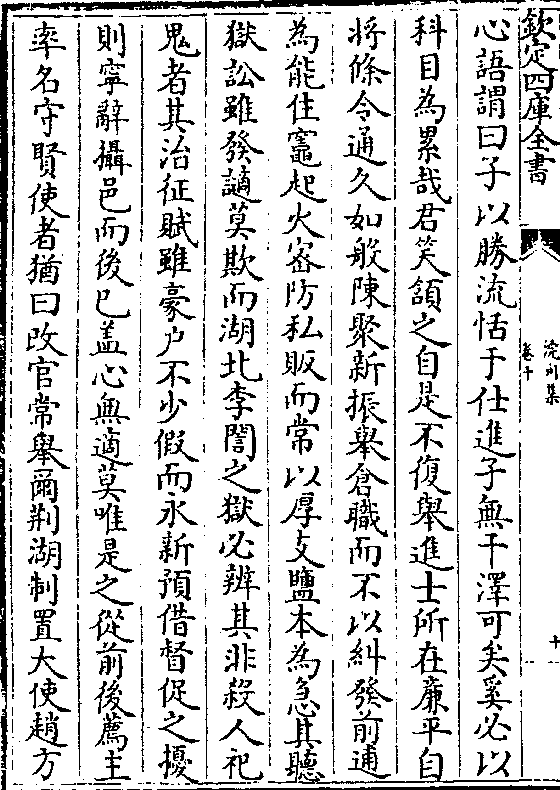 欽定四庫全書
浣川集
卷十
十
心語謂曰子以勝流恬于仕進子無干澤可矣奚必以
科目為累哉君笑頷之自是不復舉進士所在亷平自
將條令通久如般陳聚新振舉倉職而不以糾發前逋
為能住竈起火密防私販而常以厚支鹽本為急其聽
獄訟雖發讁莫欺而湖北李誾之獄必辨其非殺人祀
鬼者其治征賦雖豪户不少假而永新預借督促之擾
則寧辭攝邑而後已盖心無適莫唯是之從前後薦主
率名守賢使者猶曰改官常舉爾荆湖制置大使趙方